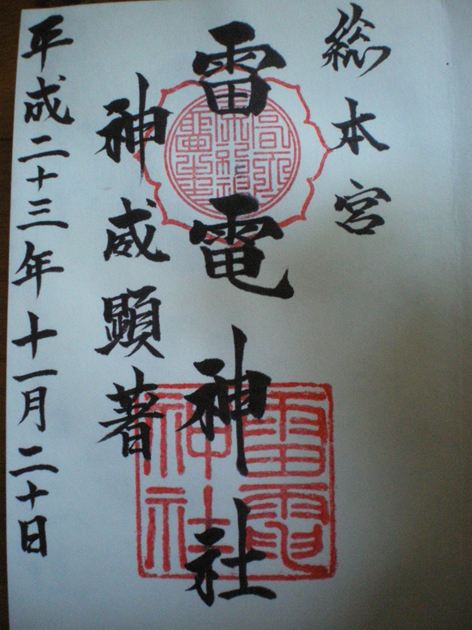 総本宮
雷電神社
神威顕著
平成二十三年十一月二十日
雷電
神社